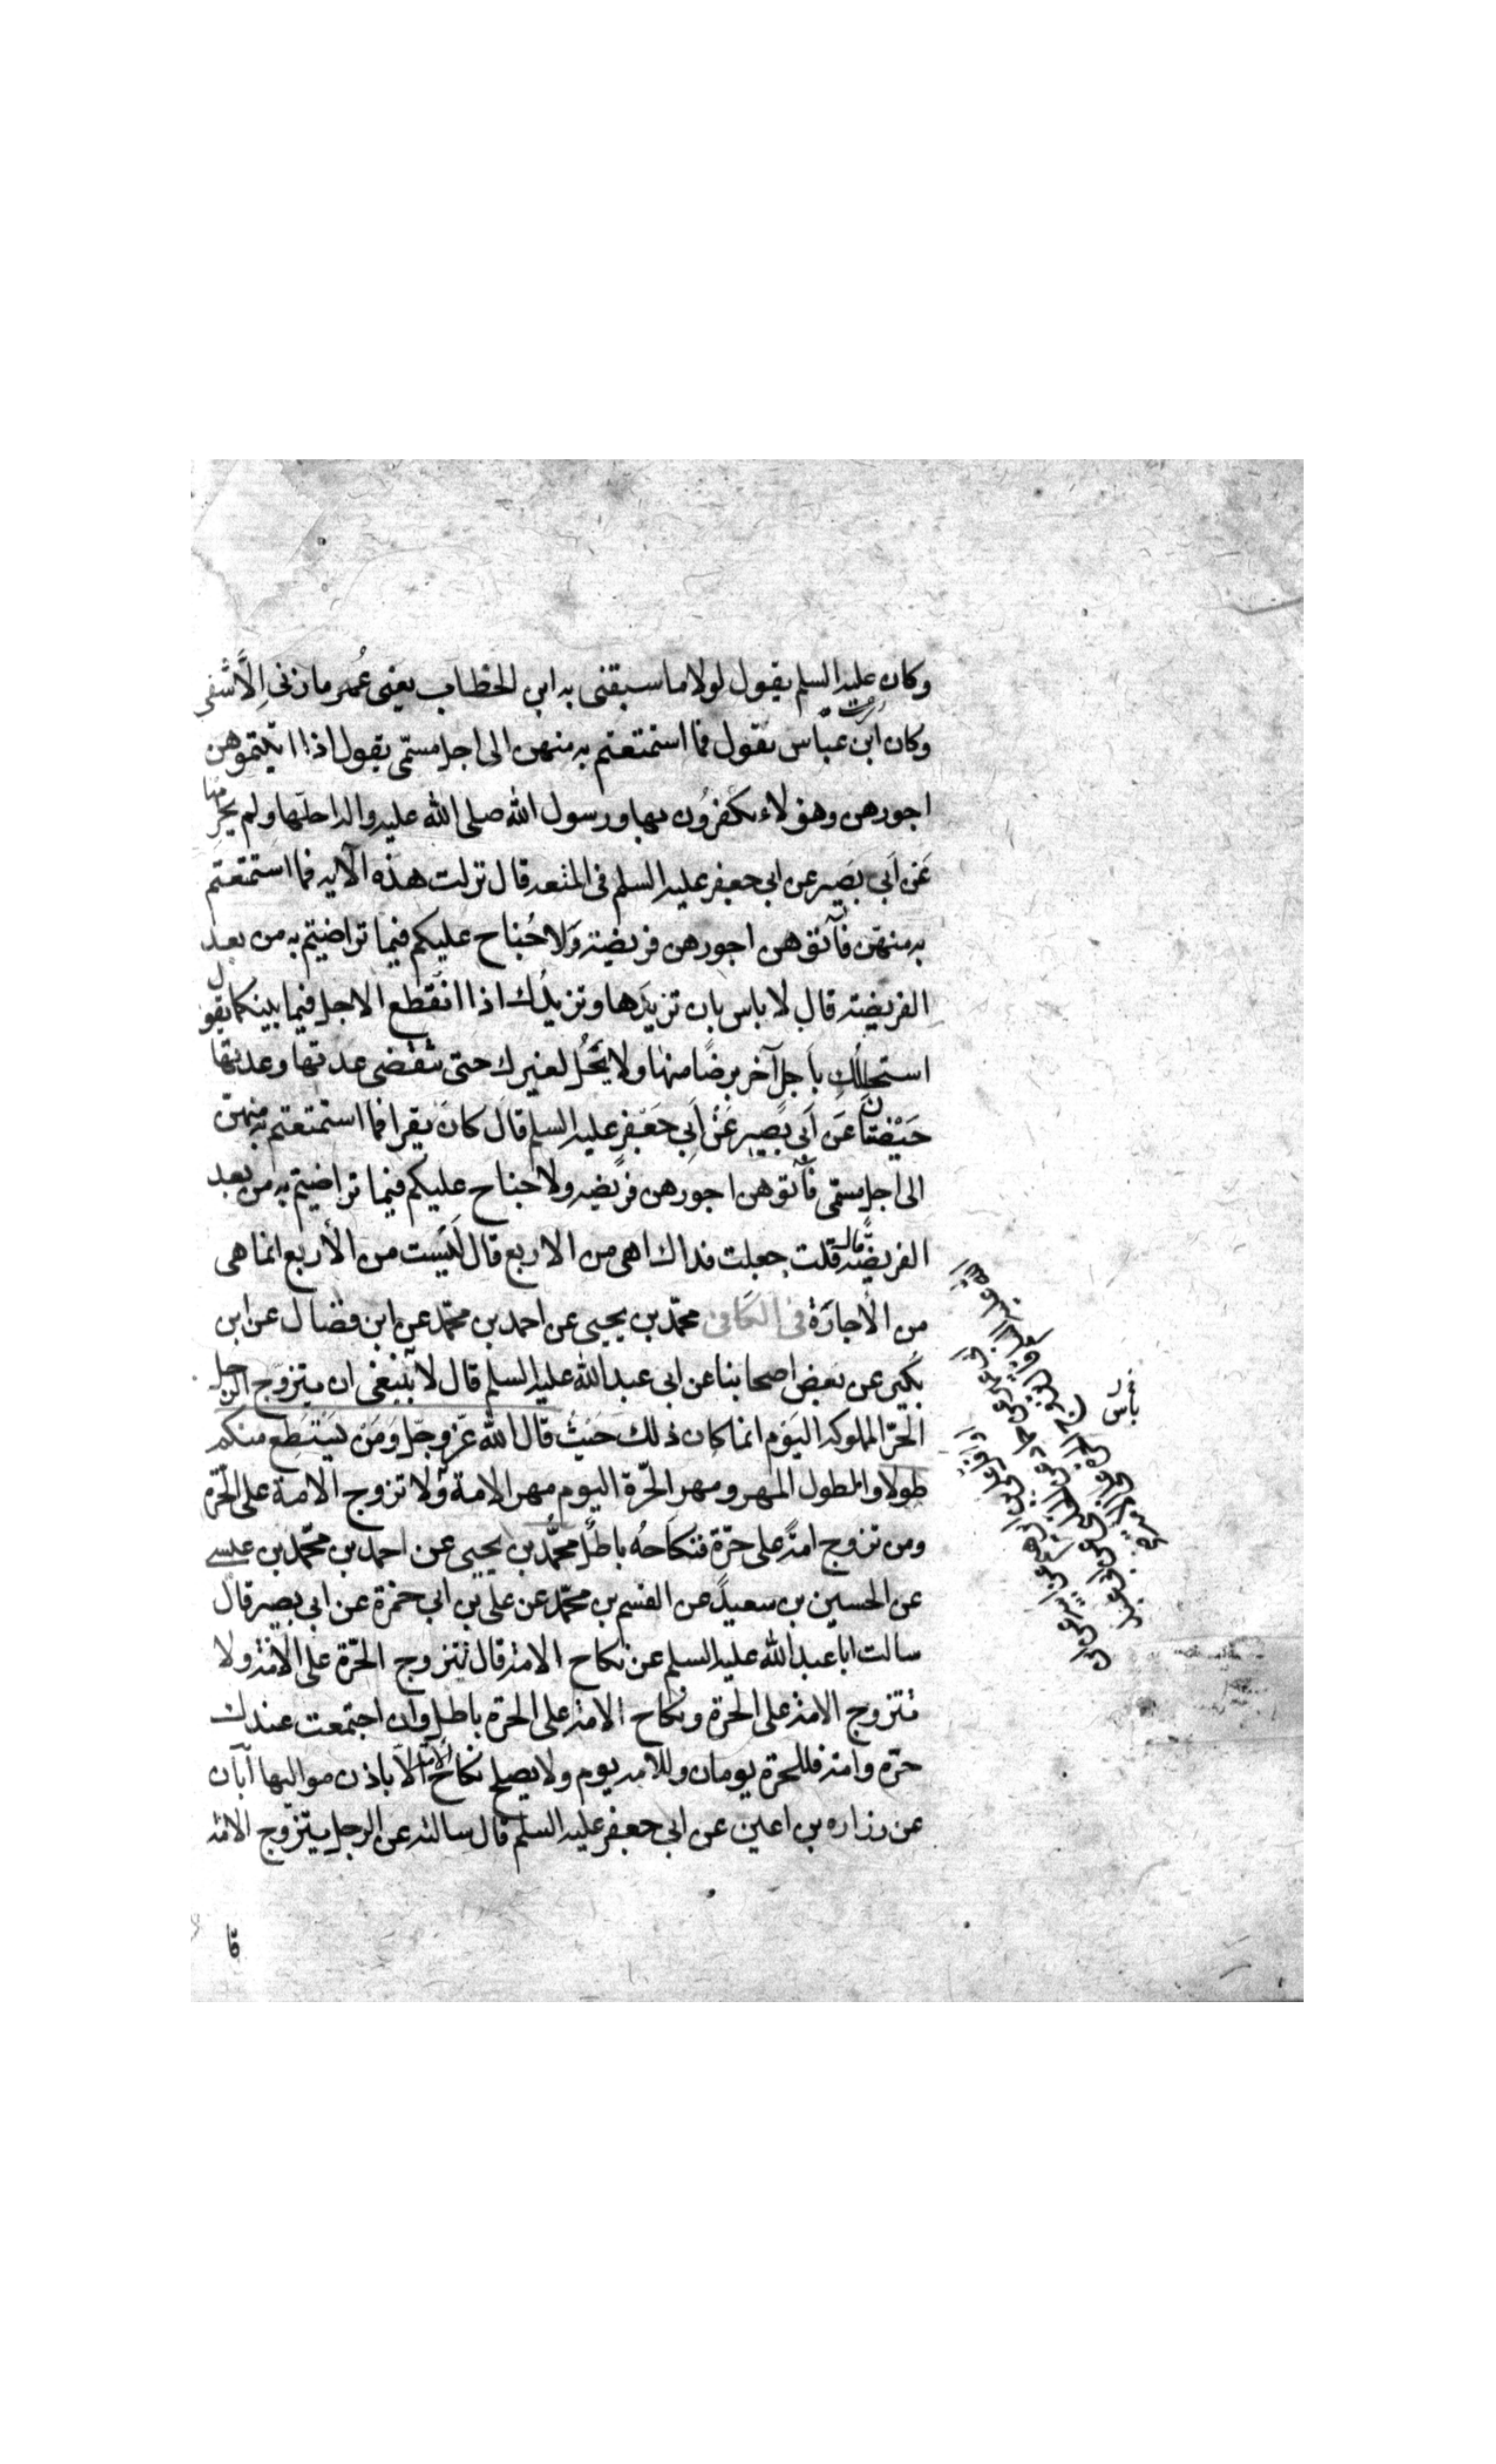 وكان عليه السلم يقول لولا ما سبقنى به ابن الخطاب يعنى عُمر ما زنى اِلّا شفى
وكان ابن عباس يقول فما استمتعتم به منهن الى اجل مسمّى يقول اذا اتيتموهن
اجورهن وهؤلاء يكفرُون بها ورسول الله صلى الله عليه واله احلّها ولم يحرمها
عَن اَبى بصَير عن ابى جعفر عليه السلم فى المتعه قال نزلت هذه الآيه فما استمتعتم
به منهنّ فآتوهن اجورهن فريضة وَلا جُناح عليكم فيما تراضيتم به من بعد
الفريضة قال لا باس بان تزيدَها وتزيدُك اذا انقَطع الاجل فيما بينكما يقول
استحللتك باَجل آخر برضًا منها ولا يحَلّ لغيرك حتى تنقضى عدتها وعدتها
حَيْضتان عَن اَبى بَصير عَنْ اَبى جَعْفر عليه السلم قالَ كانَ يقرا فما استمتعتم به منهنّ
الى اجل مسمّى فآتوهن اجورهن فريضه ولا جناح عليكم فيما تراضيتم به من بعد
الفريضة قال قلت جعلت فداك اهى من الاربع قال لَيْست من الأربع انما هى
من الاجارَة فى الكافى محمّد بن يحيى عن احمد بن محمّد عن ابن فضال عن ابن
بكير عن بعض اصحابنا عن ابى عبد الله عليه السلم قال لا ينبغى ان يتزوّج الرجل
الحرّ المملوكه اليَوم انما كان ذلك حَيْثُ قال الله عزوجلّ وَمَن لم يَسْتَطِع منكم
طولا والطول المهر ومهر الحّرة اليوم مهر الامة ولا تزوج الامة على الحّرة
ومن تزوج امةً على حرّة فنكاحهُ باطل محمّد بن يحيى عن احمد بن محمّد بن عيسى
عن الحسين بن سعيد عن القسم بن محمّد عن على بن ابى حمزة عن ابى بصير قال
سالت ابا عبد الله عليه السلم عن نكاح الامة قال تتزوج الحّرة على الامة ولا
تتزوج الامة على الحرة ونكاح الامة على الحرة باطل وان اجتمعت عندك
حرّة وامة فللحرة يومان وللامه يوم ولا يصلح نكاح الامة الّا باذن مواليها أبان
عن زراره بن اعين عن ابى جعفر عليه السلم قال سالته عن الرجل يتزوّج الامة
قا